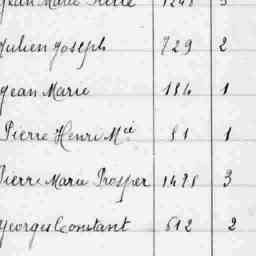 Jean Marie Pierre 1248 3
Julien Joseph 729 2
Jean Marie 184 1
Pierre Henri Mie 81 1
Pierre Marie Prosper 1498 3
Georges Constant 612 2